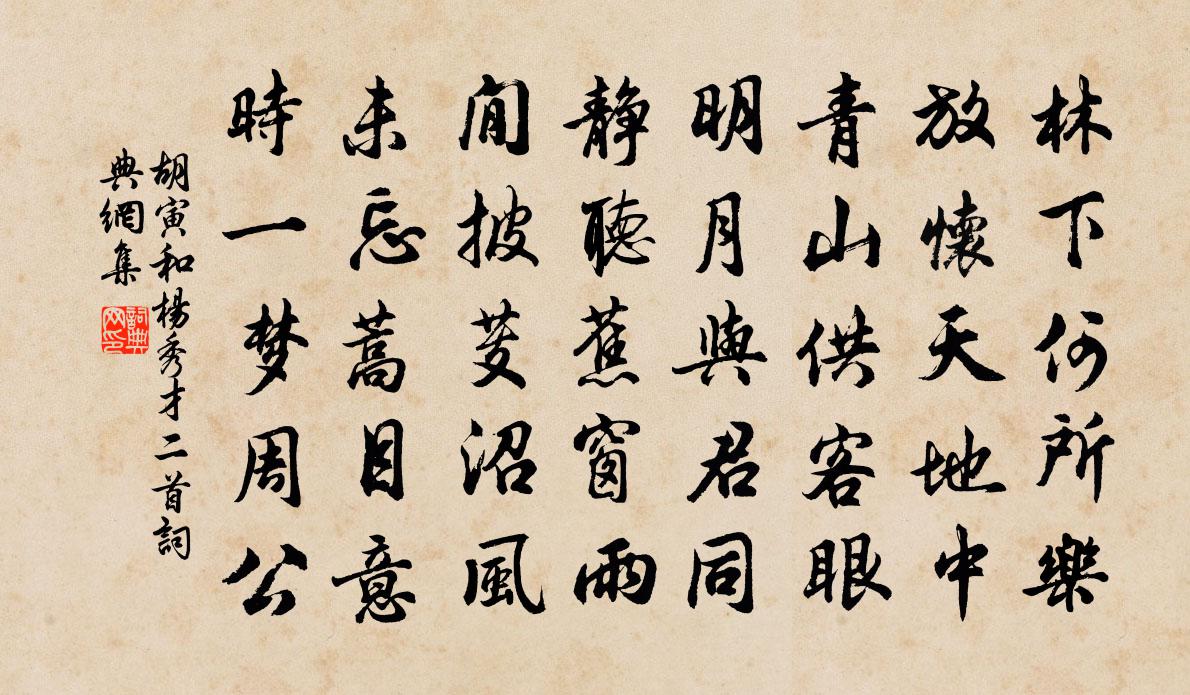 林下何所樂
放懷天地中
青山供客眼
明月與君同
靜聽蕉窗雨
閒披芰沼風
未忘蒿目意
時一梦周公
胡寅和楊秀才二首詞
典網集
詞典网印